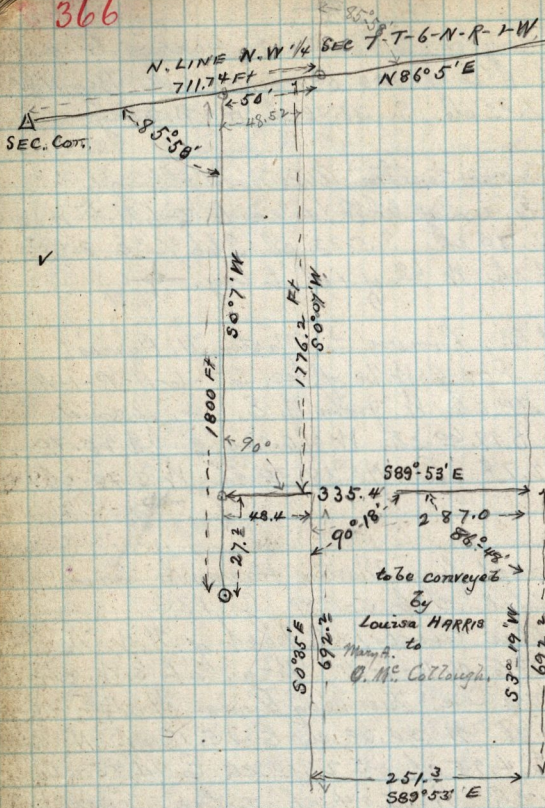 366
85°-58'
N. LINE N.W 1/4 SEC 7-T-6-N-R-1-W
711.74 Ft
N 86° 5' E
50'
48.52
SEC. Cor.
85°-58'
S 0° 7' W
1776.2 Ft
S 0° 07' W
1800 Ft
90°
S89°-53' E
335.4
48.4
287.0
27.2
90°-18'
86°-48'
to be conveyed
by
Louisa HARRIS
to
Mary A.
O. Mc. Collough.
S 0° 35' E
692.2
S 3°-19' W
692.2
251.3
S89°53' E